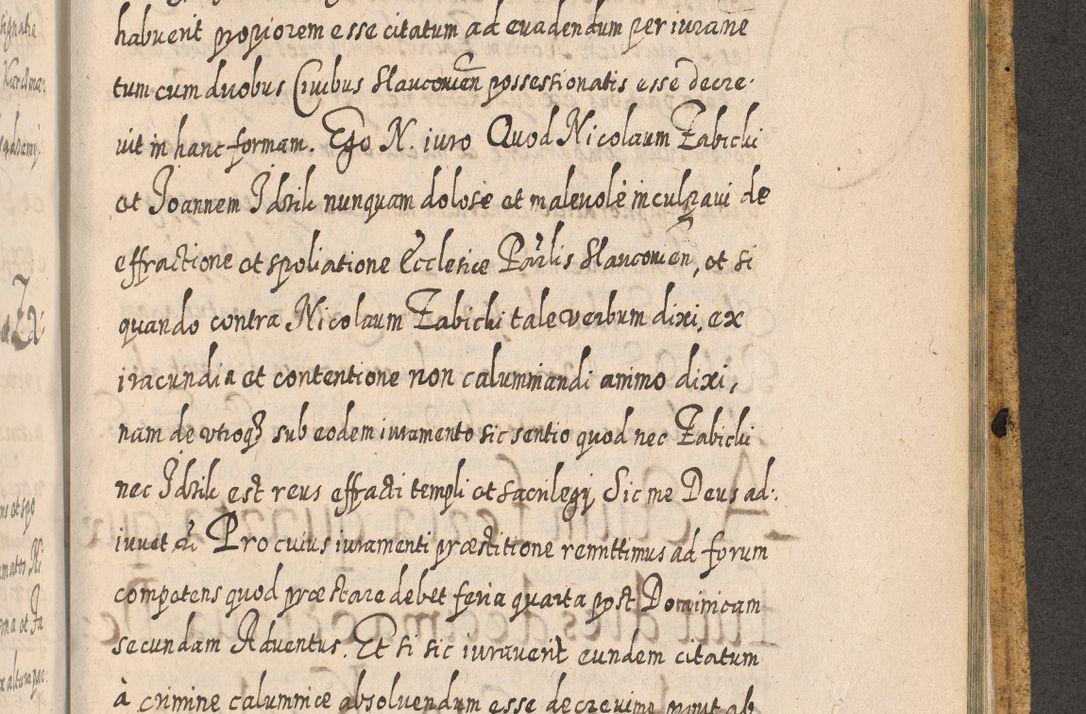 habuerit propiorem esse citatum ad evadendum per iurame
tum cum duobus Civibus Slaucovien possessionatis esse decre-
uit in hanc formam. Ego N. iuro Quod Nicolaum Zabichi
et Joannem Jdzik nunquam dolose et malevolè inculpaui de
effractione et spoliatione Ecclesiæ Parlis Slaucovien, et si
quando contra Nicolaum Zabichi tale verbum dixi, ex
iracundia et contentione non calumniandi animo dixi,
nam de vtroq3 sub eodem iuramento sic sentio quod nec Zabichi
nec Jdzik est reus effracti templi et sacrilegij Sic me Deus ad-
iuuet &c Pro cuius iuramenti præstitione remittimus ad forum
competens quod præstare debet feria quarta post Dominicam
secundam Aduentus. Et si sic iuraverit eundem citatum
à crimine calumniæ absoluendum esse decrevimus prout ab